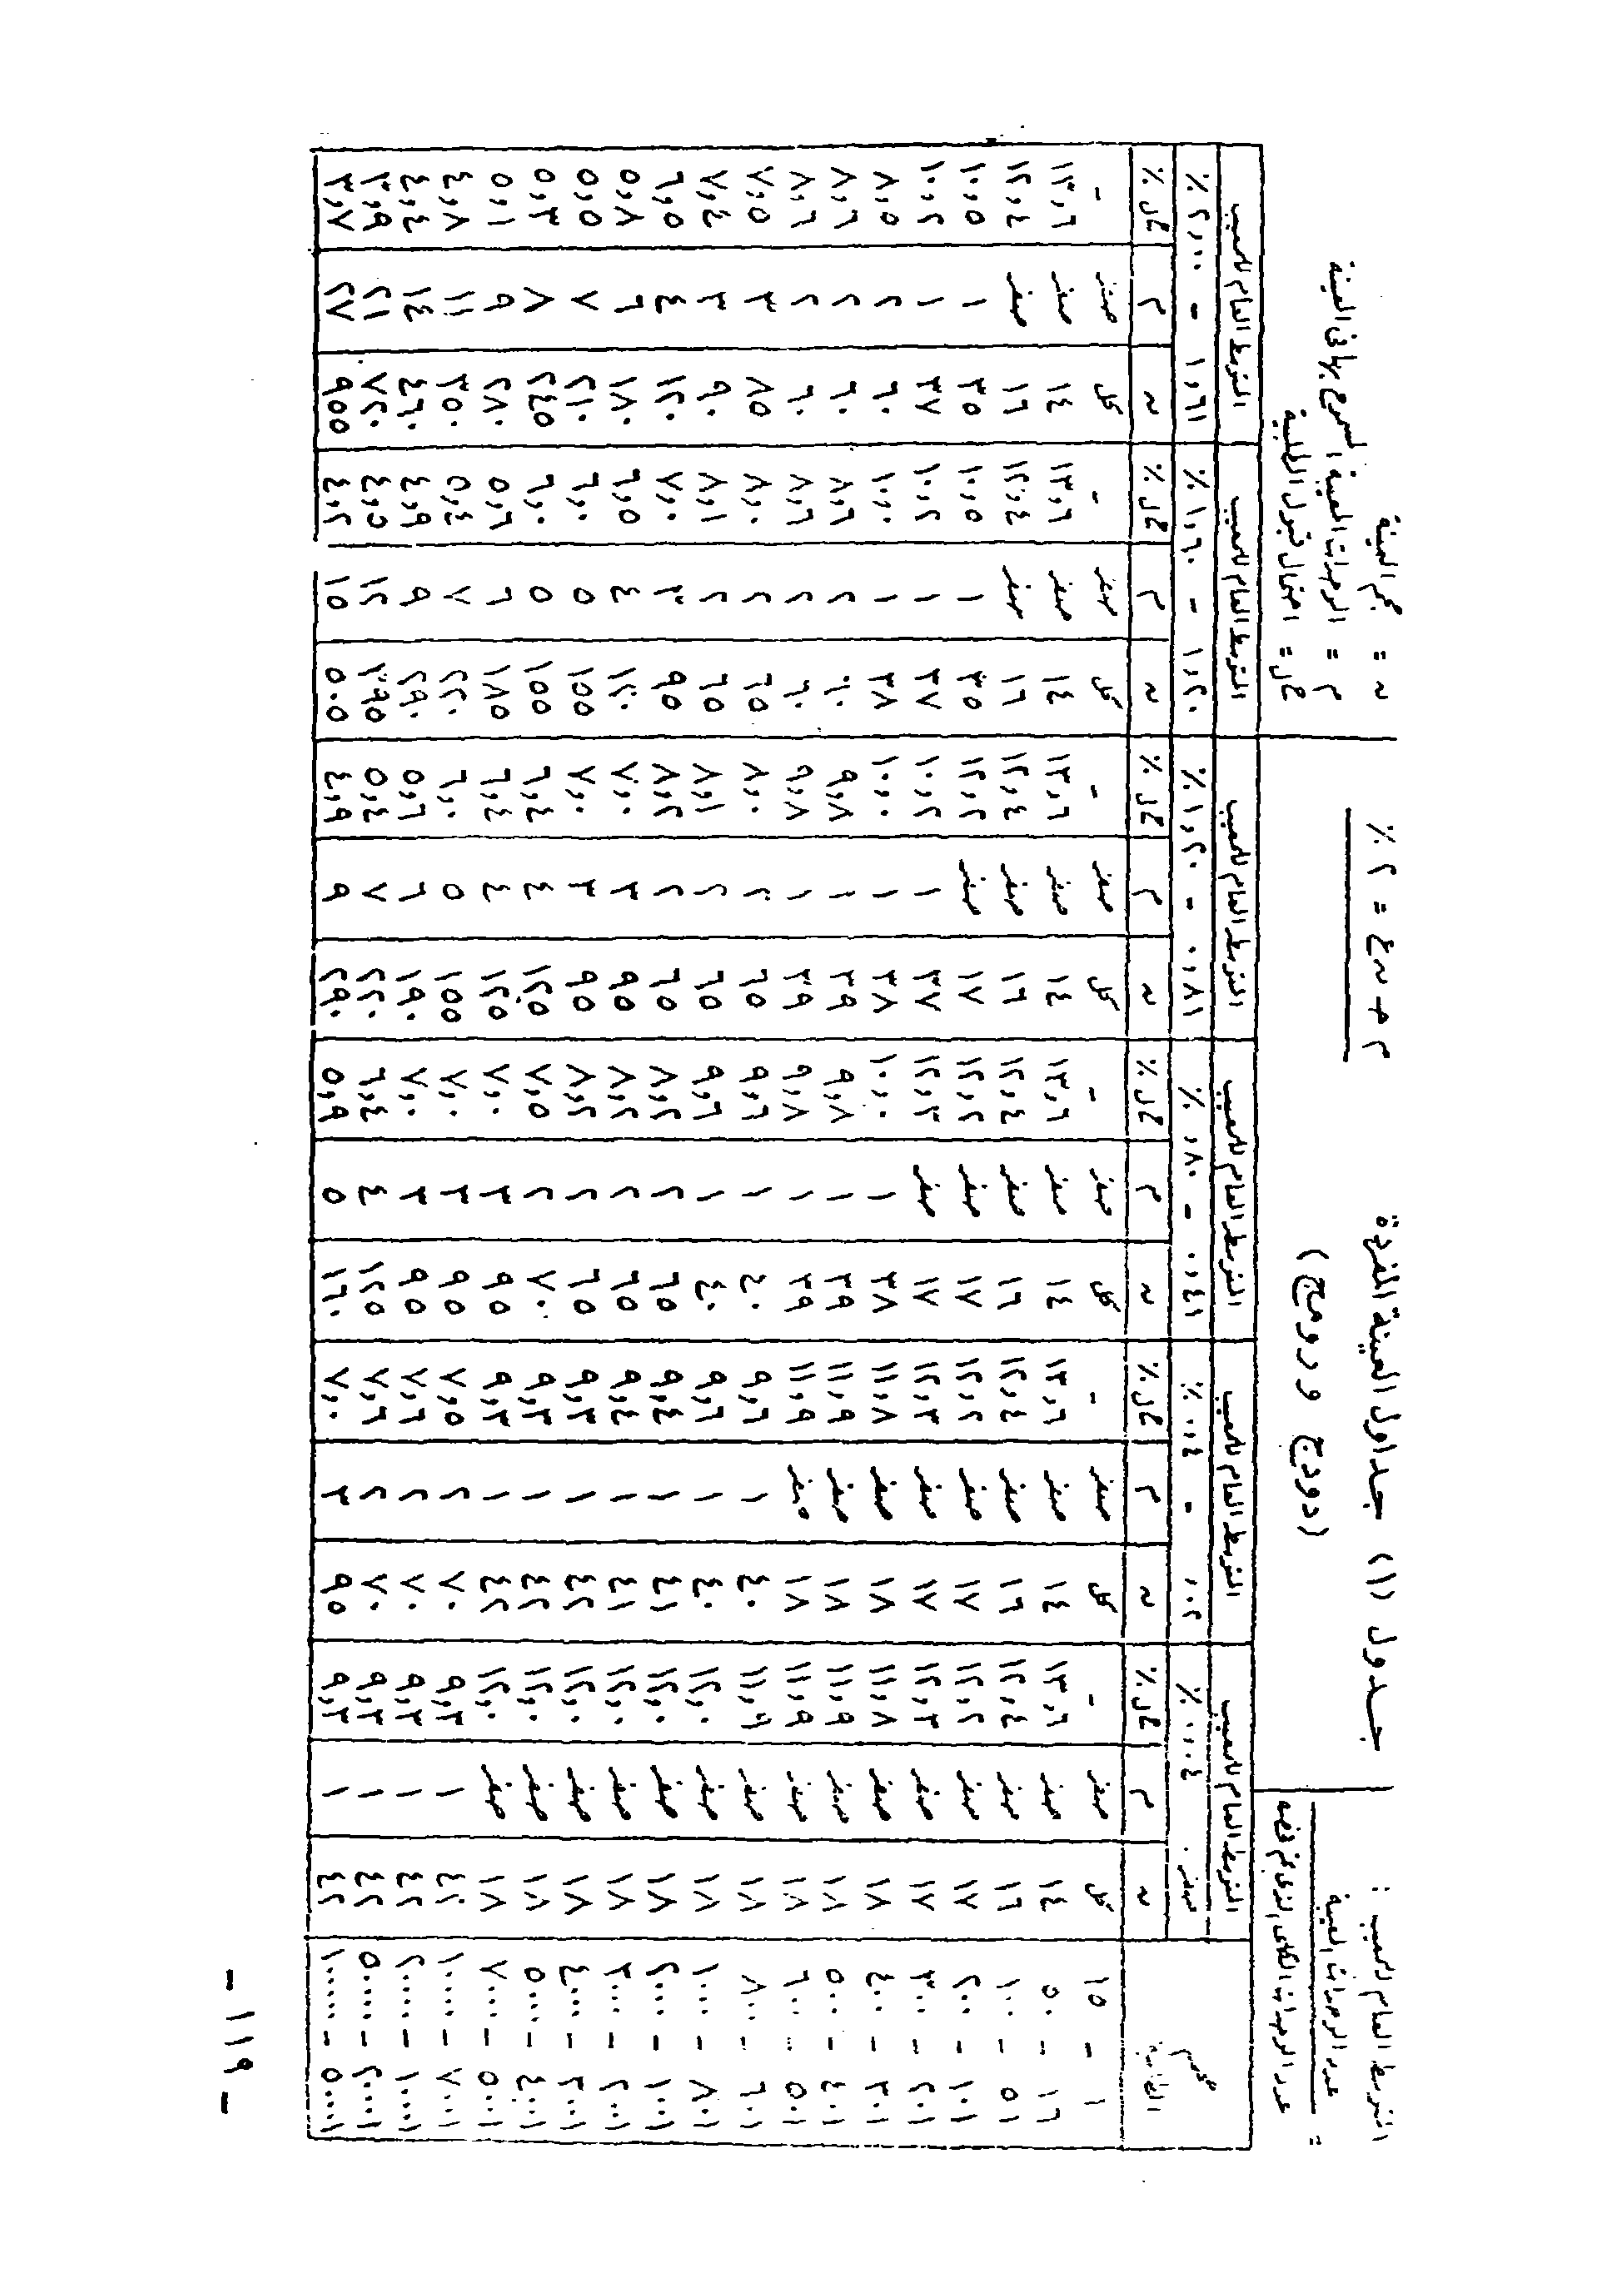 المتوسط العام للمعيب :
عدد الوحدات المعيبة
=
عدد الوحدات الكلى الذى تم فحصه
جدول (١) جداول العينة المفردة
(دودج و رومج)
م ح ن ع = ٢ ٪
ن = حجم العينة
م = الوحدات المعيبة المسموح بها فى العينة
ح ل = احتمال قبول الطلبية
حجم الطلبية المتوسط العام للمعيب المتوسط العام للمعيب المتوسط العام للمعيب المتوسط العام للمعيب المتوسط العام للمعيب المتوسط العام للمعيب
صفر - ٠٫٠٤ ٪ ٠٫٠٢ - ٠٫٤ ٪ ٠٫٤١ - ٫٨٠ ٪ ٠٫٨١ - ١٫٢٠ ٪ ١٫٢٠ - ١٫٦٠ ٪ ١٫٦١ - ٢٫٠٠ ٪
ن م ح ل ٪ ن م ح ل ٪ ن م ح ل ٪ ن م ح ل ٪ ن م ح ل ٪ ن م ح ل ٪
١ - ١٥ كل صفر - كل صفر - كل صفر - كل صفر - كل صفر - كل صفر -
١٦ - ٥٠ ١٤ صفر ١٣٫٦ ١٤ صفر ١٣٫٦ ١٤ صفر ١٣٫٦ ١٤ صفر ١٣٫٦ ١٤ صفر ١٣٫٦ ١٤ صفر ١٣٫٦
٥١ - ١٠٠ ١٦ صفر ١٢٫٤ ١٦ صفر ١٢٫٤ ١٦ صفر ١٢٫٤ ١٦ صفر ١٢٫٤ ١٦ صفر ١٢٫٤ ١٦ صفر ١٢٫٤
١٠١ - ٢٠٠ ١٧ صفر ١٢٫٢ ١٧ صفر ١٢٫٢ ١٧ صفر ١٢٫٢ ١٧ صفر ١٢٫٢ ٣٥ ١ ١٠٫٥ ٣٥ ١ ١٠٫٥
٢٠١ - ٣٠٠ ١٧ صفر ١٢٫٣ ١٧ صفر ١٢٫٣ ١٧ صفر ١٢٫٣ ٣٧ ١ ١٠٫٢ ٣٧ ١ ١٠٫٢ ٣٧ ١ ١٠٫٢
٣٠١ - ٤٠٠ ١٨ صفر ١١٫٨ ١٨ صفر ١١٫٨ ٣٨ ١ ١٠٫٠ ٣٨ ١ ١٠٫٠ ٣٨ ١ ١٠٫٠ ٦٠ ٢ ٨٫٥
٤٠١ - ٥٠٠ ١٨ صفر ١١٫٩ ١٨ صفر ١١٫٩ ٣٩ ١ ٩٫٨ ٣٩ ١ ٩٫٨ ٦٠ ٢ ٨٫٦ ٦٠ ٢ ٨٫٦
٥٠١ - ٦٠٠ ١٨ صفر ١١٫٩ ١٨ صفر ١١٫٩ ٣٩ ١ ٩٫٨ ٣٩ ١ ٩٫٨ ٦٠ ٢ ٨٫٦ ٦٠ ٢ ٨٫٦
٦٠١ - ٨٠٠ ١٨ صفر ١١٫٩ ٤٠ ١ ٩٫٦ ٤٠ ١ ٩٫٦ ٦٥ ٢ ٨٫٠ ٦٥ ٢ ٨٫٠ ٨٥ ٣ ٧٫٥
٨٠١ - ١٠٠٠ ١٨ صفر ١٢٫٠ ٤٠ ١ ٩٫٦ ٤٠ ١ ٩٫٦ ٦٥ ٢ ٨٫١ ٦٥ ٢ ٨٫١ ٩٠ ٣ ٧٫٤
١٠٠١ - ٢٠٠٠ ١٨ صفر ١٢٫٠ ٤١ ١ ٩٫٤ ٦٥ ٢ ٨٫٢ ٦٥ ٢ ٨٫٢ ٩٥ ٣ ٧٫٠ ١٢٠ ٤ ٦٫٥
٢٠٠١ - ٣٠٠٠ ١٨ صفر ١٢٫٠ ٤١ ١ ٩٫٤ ٦٥ ٢ ٨٫٢ ٩٥ ٣ ٧٫٠ ١٢٠ ٤ ٦٫٥ ١٨٠ ٦ ٥٫٨
٣٠٠١ - ٤٠٠٠ ١٨ صفر ١٢٫٠ ٤٢ ١ ٩٫٣ ٦٥ ٢ ٨٫٢ ٩٥ ٣ ٧٫٠ ١٥٥ ٥ ٦٫٠ ٢١٠ ٧ ٥٫٥
٤٠٠١ - ٥٠٠٠ ١٨ صفر ١٢٫٠ ٤٢ ١ ٩٫٣ ٧٠ ٢ ٧٫٥ ١٢٥ ٤ ٦٫٤ ١٥٥ ٥ ٦٫٠ ٢٤٥ ٨ ٥٫٣
٥٠٠١ - ٧٠٠٠ ١٨ صفر ١٢٫٠ ٤٢ ١ ٩٫٣ ٩٥ ٣ ٧٫٠ ١٢٥ ٤ ٦٫٤ ١٨٥ ٦ ٥٫٦ ٢٨٠ ٩ ٥٫١
٧٠٠١ - ١٠٠٠٠ ١ ٩٫٣ ٧٠ ٢ ٧٫٥ ٩٥ ٣ ٧٫٠ ١٥٥ ٥ ٦٫٠ ٢٢٠ ٧ ٥٫٤ ٣٥٠ ١١ ٤٫٨
١٠٠٠١ - ٢٠٠٠٠ ٤٢ ١ ٩٫٣ ٧٠ ٢ ٧٫٦ ٩٥ ٣ ٧٫٠ ١٩٠ ٦ ٥٫٦ ٢٩٠ ٩ ٤٫٩ ٤٦٠ ١٤ ٤٫٤
٢٠٠٠١ - ٥٠٠٠٠ ٤٢ ١ ٩٫٣ ٧٠ ٢ ٧٫٦ ١٢٥ ٤ ٦٫٤ ٢٢٠ ٧ ٥٫٤ ٣٩٥ ١٢ ٤٫٥ ٧٢٠ ٢١ ٣٫٩
٥٠٠٠١ - ١٠٠٠٠٠ ٤٢ ١ ٩٫٣ ٩٥ ٣ ٧٫٠ ١٦٠ ٥ ٥٫٩ ٢٩٠ ٩ ٤٫٩ ٥٠٥ ١٥ ٤٫٢ ٩٥٥ ٢٧ ٣٫٧
- ١١٩ -